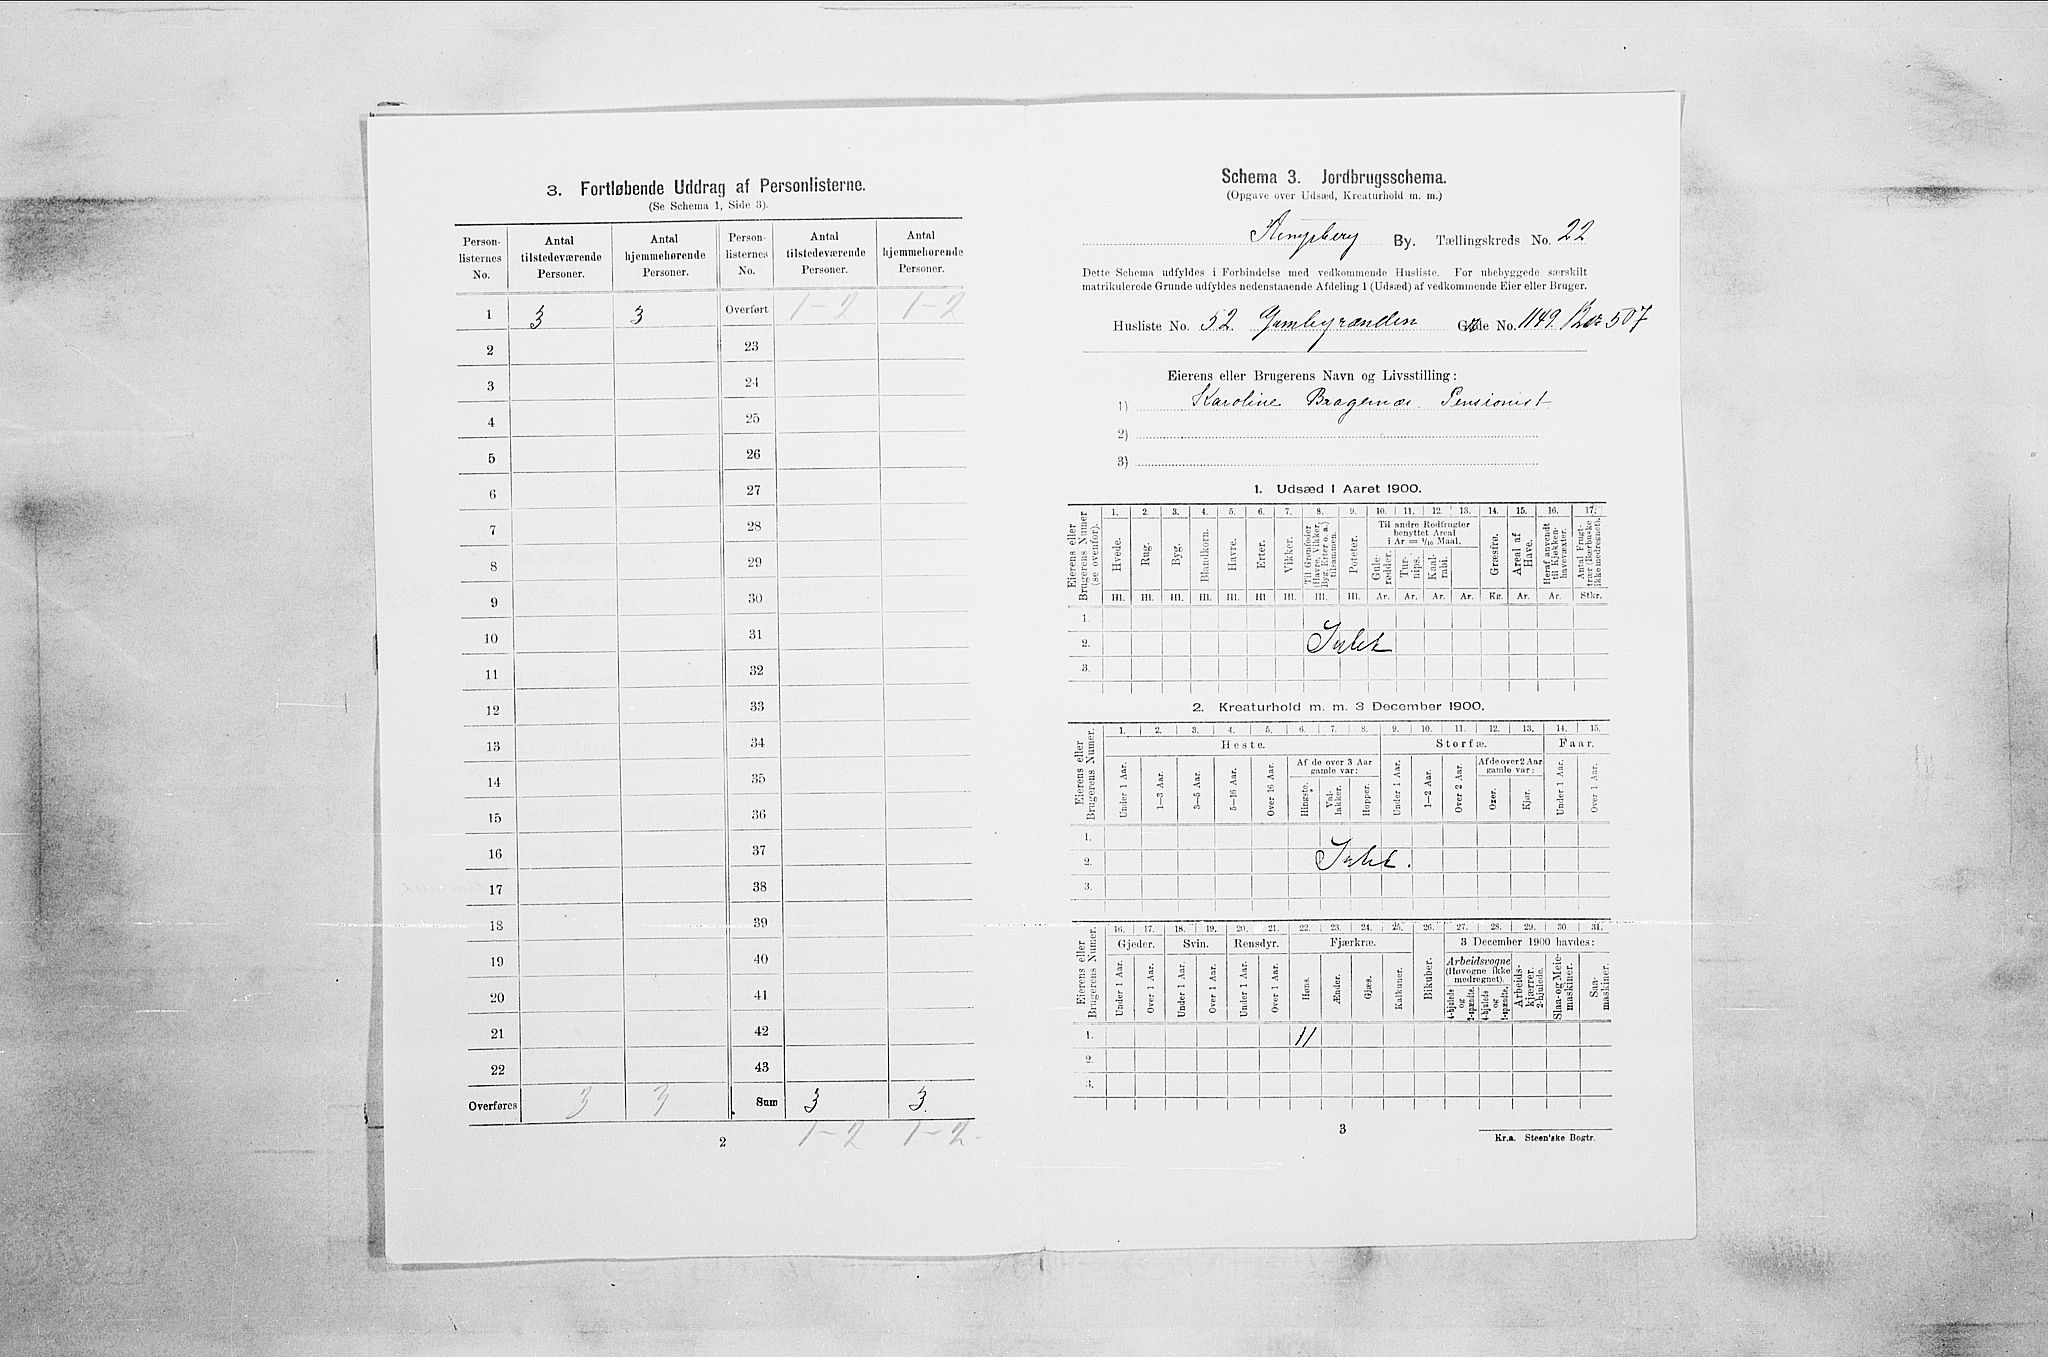 3. Fortløbende Uddrag af Personlisterne.
(Se Schema 1, Side 3).
Person-listernes No. Antal tilstedeværende Personer. Antal hjemmehørende Personer. Person-listernes No. Antal tilstedeværende Personer. Antal hjemmehørende Personer.
1 3 3 Overført 1-2 1-2
2 23
3 24
4 25
5 26
6 27
7 28
8 29
9 30
10 31
11 32
12 33
13 34
14 35
15 36
16 37
17 38
18 39
19 40
20 41
21 42
22 43
Overføres 3 3 Sum 3 3.
1-2 1-2-
2
Schema 3. Jordbrugsschema.
(Opgave over Udsæd, Kreaturhold m. m.)
Kongsberg By. Tællingskreds No. 22
Dette Schema udfyldes i Forbindelse med vedkommende Husliste. For ubebyggede særskilt
matrikulerede Grunde udfyldes nedenstaaende Afdeling 1 (Udsæd) af vedkommende Eier eller Bruger.
Husliste No. 52. No. 1149. 507
Eierens eller Brugerens Navn og Livsstilling:
1) Karoline Bragernæs. Pensionist
2)
3)
1. Udsæd i Aaret 1900.
Eierens eller Brugerens Numer (se ovenfor).
1. 2. 3. 4. 5. 6. 7. 8. 9. 10. 11. 12. 13. 14. 15. 16. 17.
Hvede. Rug. Byg. Blandkorn. Havre. Erter. Vikker. Til Grønfoder (Havre, Vikker, Byg, Erter o. a.) tilsammen. Poteter. Til andre Rodfrugter benyttet Areal i Ar = 1/10 Maal. Gule-rødder. Tur-nips. Kaal-rabi. Græsfrø. Areal af Have. Heraf anvendt til Kjøkken-havevæxter. Antal Frugt-trær (Bærbuske ikke medregnet).
Hl. Hl. Hl. Hl. Hl. Hl. Hl. Hl. Hl. Ar. Ar. Ar. Ar. Kg. Ar. Ar. Stkr.
1.
2. Intet
3.
2. Kreaturhold m. m. 3 December 1900.
Eierens eller Brugerens Numer.
1. 2. 3. 4. 5. 6. 7. 8. 9. 10. 11. 12. 13. 14. 15.
Heste. Storfæ. Faar.
Under 1 Aar. 1—3 Aar. 3—5 Aar. 5—16 Aar. Over 16 Aar. Af de over 3 Aar gamle var: Hingste. Val-lakker. Hopper. Under 1 Aar. 1—2 Aar. Over 2 Aar. Af de over 2 Aar gamle var: Oxer. Kjør. Under 1 Aar. Over 1 Aar.
1.
2. Intet.
3.
Eierens eller Brugerens Numer.
16. 17. 18. 19. 20. 21. 22. 23. 24. 25. 26. 27. 28. 29. 30. 31.
Gjeder. Svin. Rensdyr. Fjærkræ. Bikuber. 3 December 1900 havdes:
Under 1 Aar. Over 1 Aar. Under 1 Aar. Over 1 Aar. Under 1 Aar. Over 1 Aar. Høns. Ænder. Gjæs. Kalkuner. Arbeidsvogne (Høvogne ikke medregnet). 4-hjulede og 2-spændte. 4-hjulede og 1-spændte. Arbeids-kjærrer, 2-hjulede. Slaa- og Meie-maskiner. Saa-maskiner.
1. 11
2.
3.
3
Kr.a. Steen'ske Bogtr.